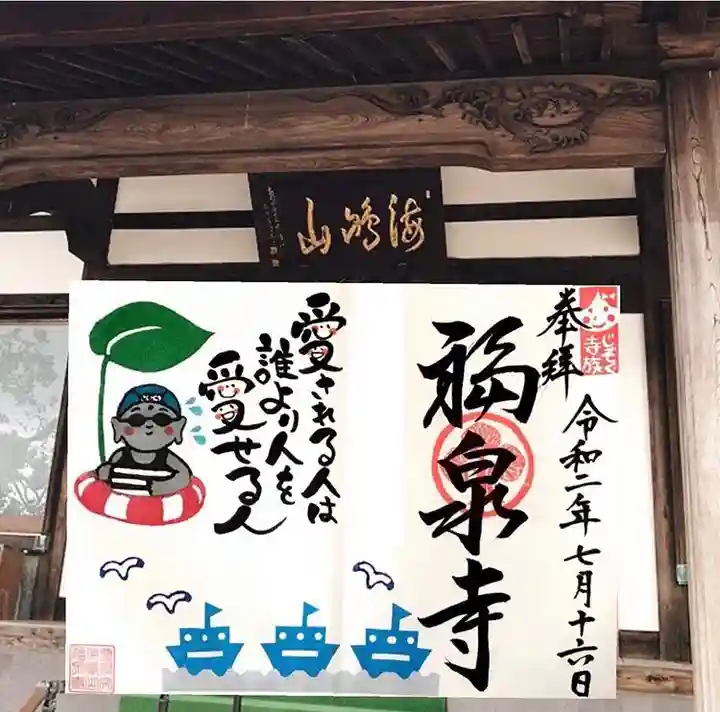 海鳴山
奉拝
じぞく
寺族
福泉寺
令和二年七月十六日
愛される人は
誰より人を
愛せる人